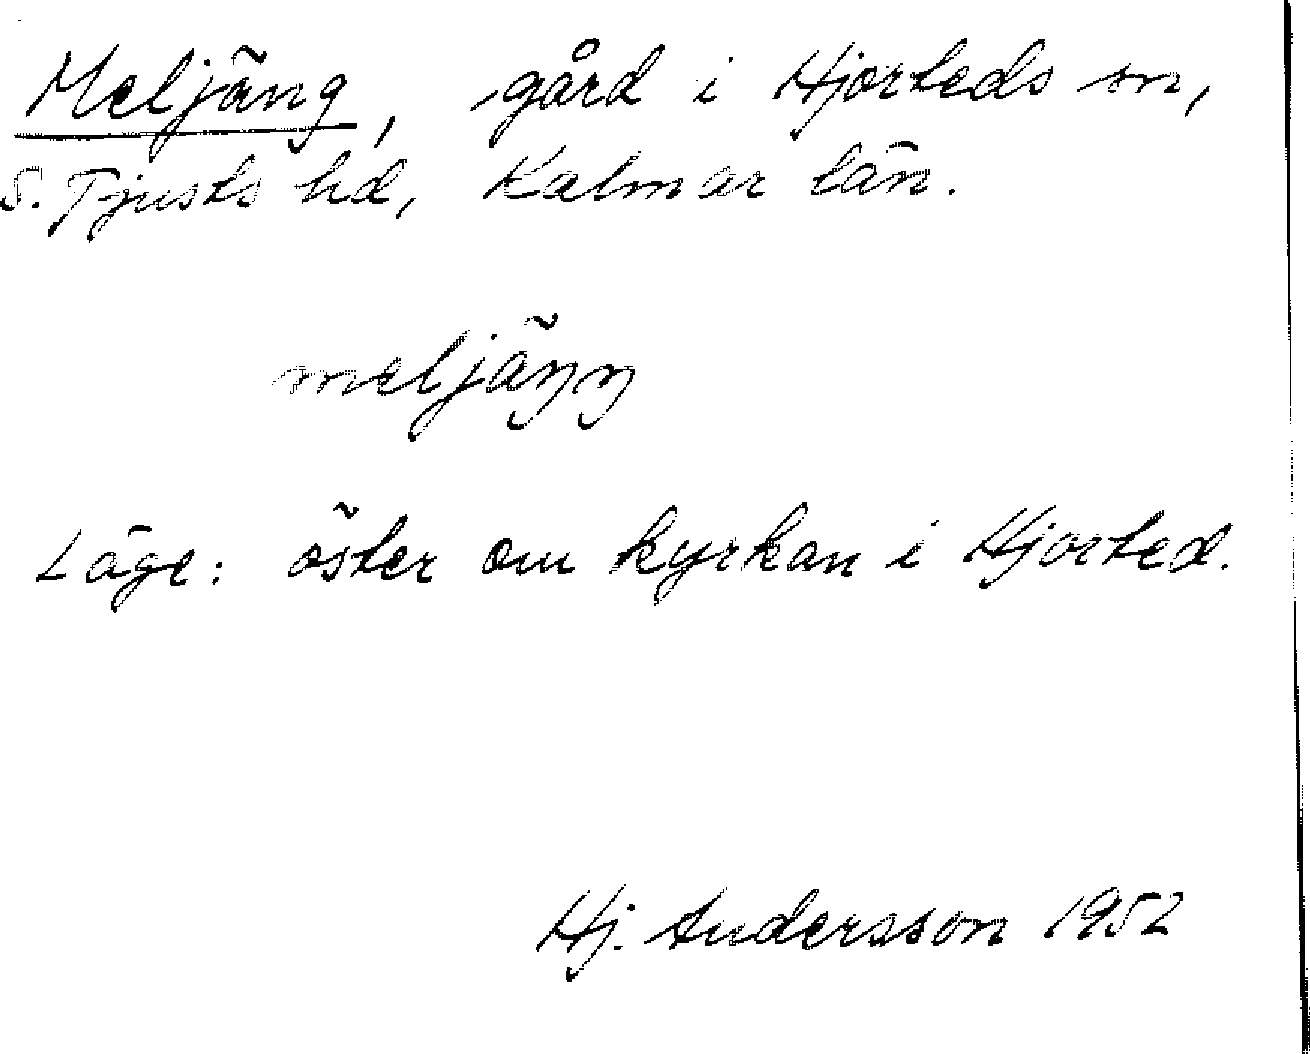 Meljäng, gård i Hjorteds sn,
S. Tjusts hd, Kalmar län.
meljäŋŋ
Läge: öster om kyrkan i Hjorted.
Hj. Andersson 1952